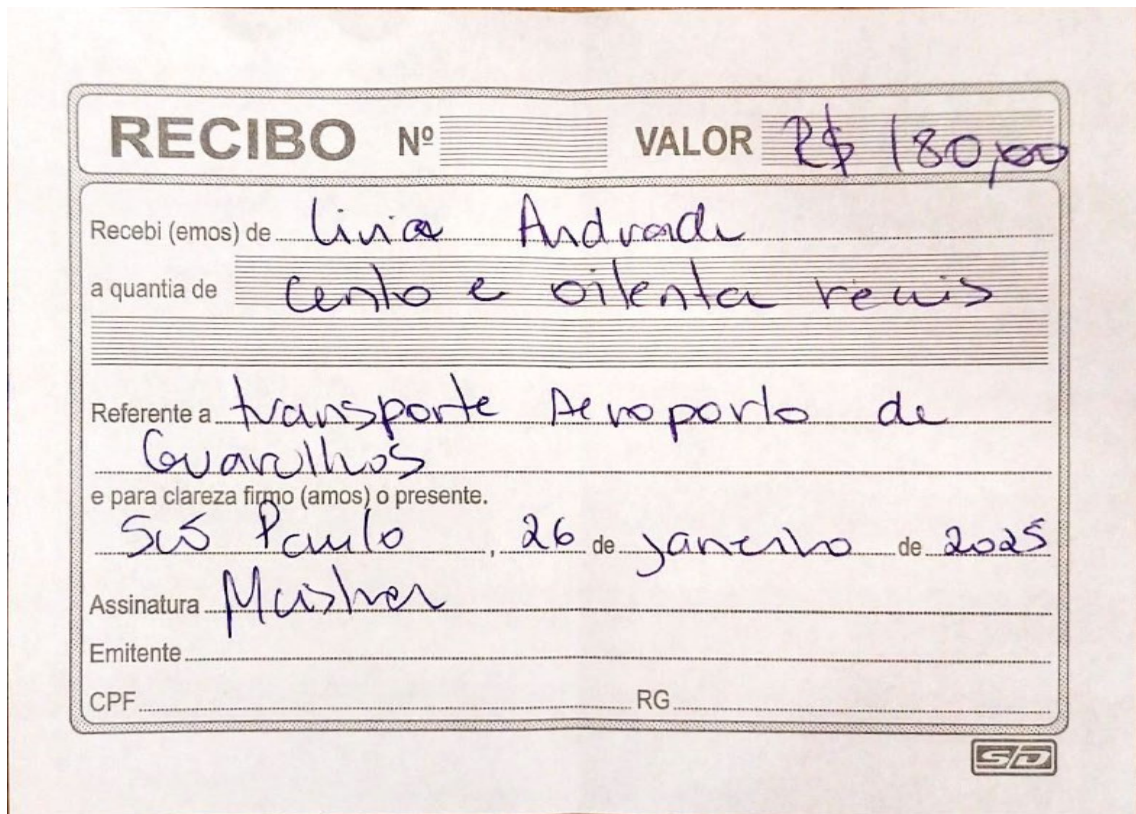 RECIBO Nº VALOR R$ 180,00
Recebi (emos) de Livia Andrade
a quantia de cento e oitenta reais
Referente a transporte Aeroporto de
Guarulhos
e para clareza firmo (amos) o presente.
São Paulo, 26 de janeiro de 2025
Assinatura
Emitente
CPF RG
SD